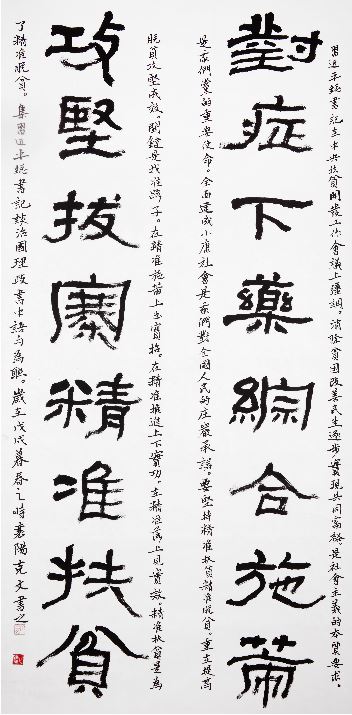 習近平總書記在中央扶貧開發工作會議上強調。消除貧困改善民生逐步實現共同富裕。是社會主義的本質要求。
對症下藥綜合施策
是我們黨的重要使命。全面建成小康社會是我們對全國人民的庄嚴承諾。要堅持精准扶貧精准脫貧。重在提高
脫貧攻堅成效。關鍵是找准路子。在精准施策上出實招。在精准推進上下實功。在精准落上見實效。精准扶貧是為
攻堅拔寨精准扶貧
了精准脫貧。集習近平總書記談治國理政書中語句為聯。歲在戊戌暮春之時襄陽克文書之